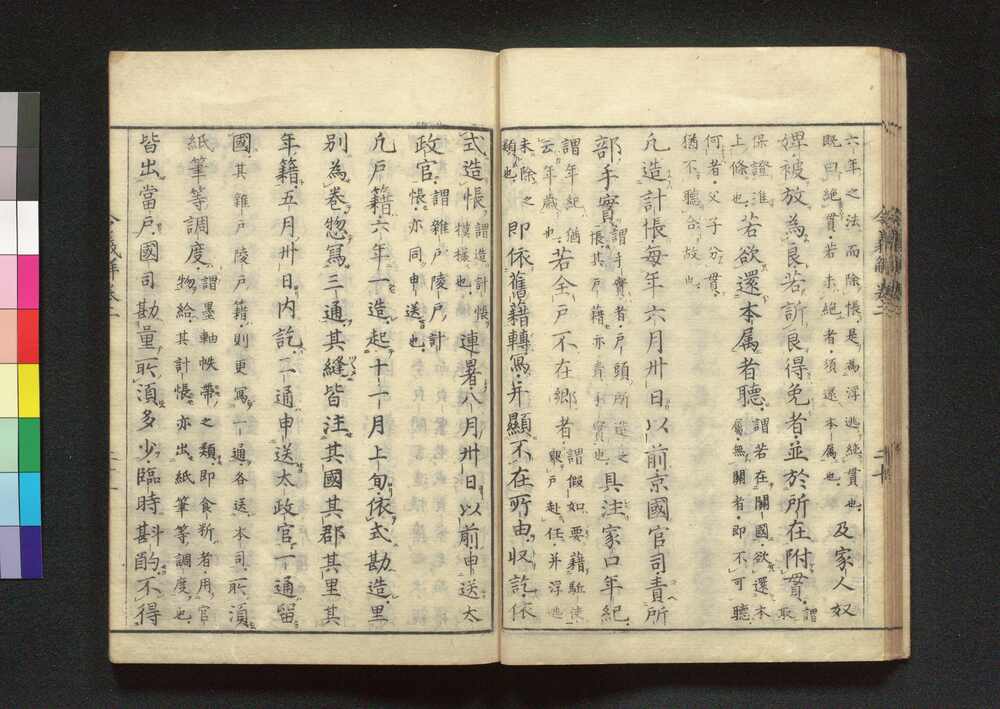 六年之法而除帳是為浮逃絶貫也
既曰絶貫若未絶者須還本属也
及家人奴
婢被放為良若訴良得免者並於所在附貫
謂取
保證准
上條也
若欲還本属者聴
謂若在關國欲還本
属無關者即不可聴
何者父子分貫
猶不聴合故也
凡造計帳每年六月卅日以前京國官司責所
部手實
謂手實者戸頭所造之
帳其戸籍亦責手實也
具注家口年紀
謂年紀猶
云年歳也
若全戸不在郷者
謂假如要籍駈使
戸赴任并浮逃
未除之
類也
即依舊籍轉寫并顯不在所由収訖依
式造帳
謂造計帳
模様也
連署八月卅日以前申送太
政官
謂雜戸陵戸計
帳亦同申送也
凡戸籍六年一造起十一月上旬依式勘造里
別為卷惣寫三通其縫皆注其國其郡其里其
年籍五月卅日内訖二通申送太政官一通留
國其雜戸陵戸籍則更寫一通各送本司所須
紙筆等調度
謂墨軸帙帶之類即食断者用官
物給其計帳亦出紙筆等調度也
皆出當戸國司勘量所須多少臨時斟酌不得
令義解卷二
二十